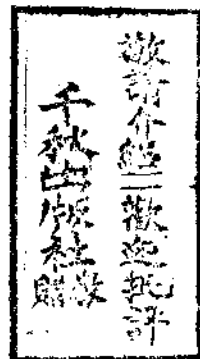 敬請介紹　歡迎批評
千秋出版社敬贈